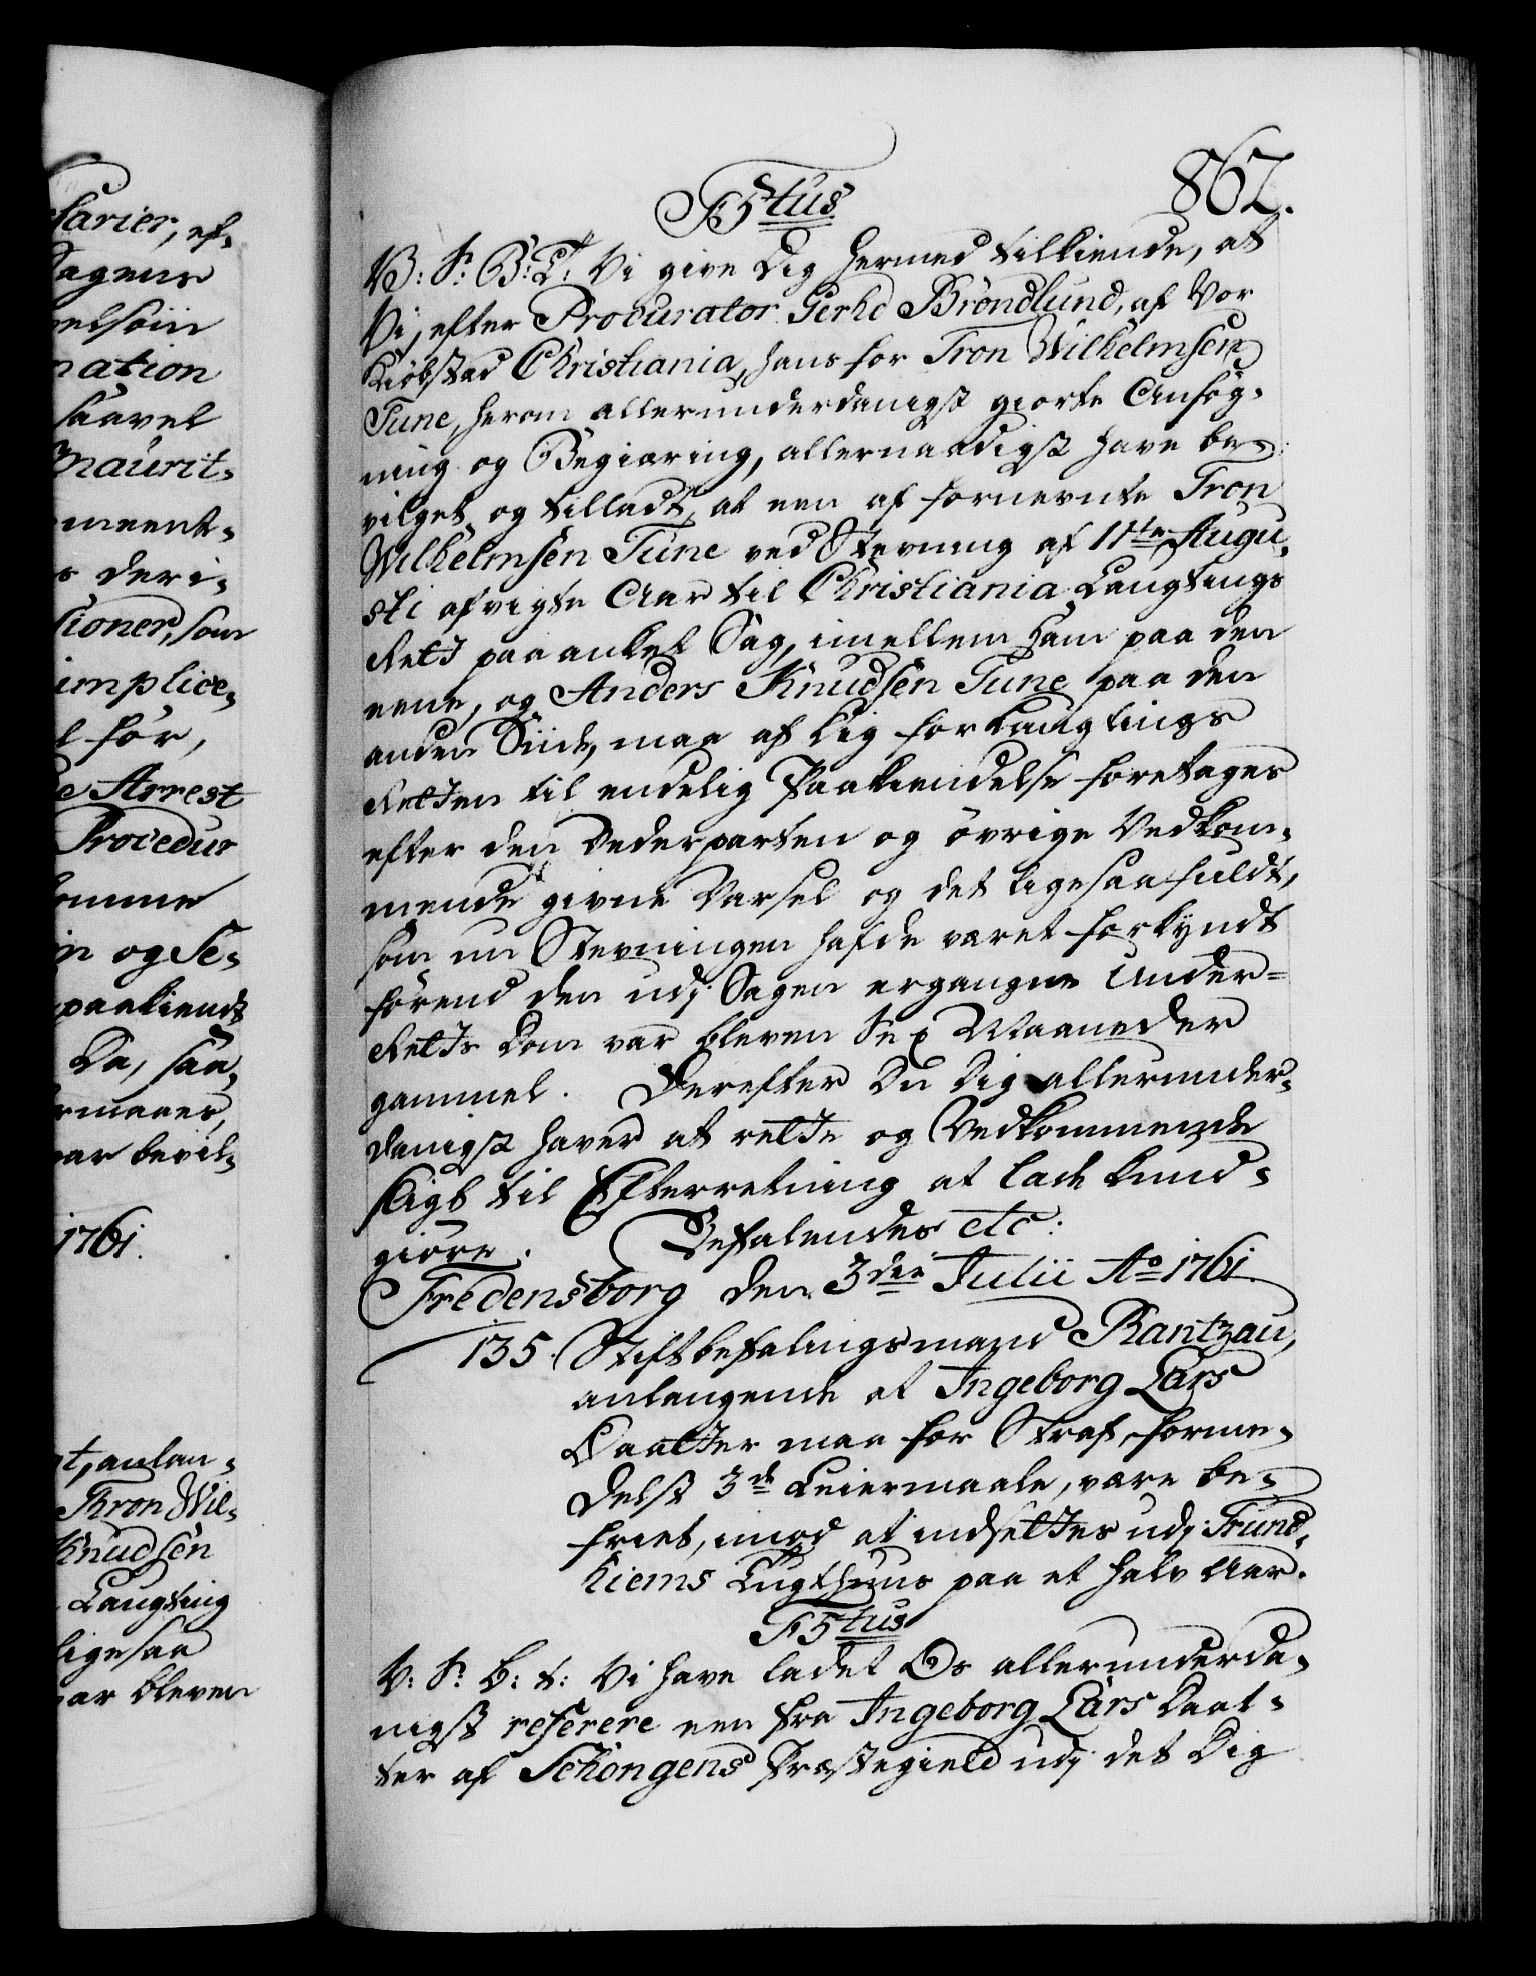 862.
F 5tus
V: S: B: T: Vi give Dig hermed tilkiende, at
Vi, efter Procurator Gerhd Bröndlund, af Vor
Kiøbstad Christiania, hans for Tron Wilhelmsen
Tune, herom allerunderdanigst giorte Ansøg-
ning og Begiæring, allernaadigst have be-
vilget og tilladt, at een af fornevnte Tron
Wilhelmsen Tune ved Stevning af 11te Augu-
sti afvigte Aar til Christiania Laugtings
Rett paaanket Sag, imellem ham paa den
eene, og Anders Knudsen Tune paa den
anden Siide, maa af Dig for Laugtings
Retten til endelig Paakiendelse foretages
efter den Vederparten og øvrige Vedkom-
mende givne Varsel og det ligesaafuldt,
som om Stevningen hafde været forkyndt
førend den udj Sagen ergangne Under-
Retts Dom var bleven Sex Maaneder
gammel. Derefter Du Dig allerunder-
danigst haver at rette og Vedkommende
sligt til Efterretning at lade kund-
giøre. Befalendes etc:
Fredensborg den 3die Julii Ao 1761
135. Stiftbefalingsmand Rantzau,
anlangende at Ingeborg Lars
Daatter maa for Straf, forme-
delst 3de Leiermaale, være be-
friet, imod at indsettes udj Trund-
hiems Tugthuus paa et halv Aar.
F 5tus
V: S: B: T: Vi have ladet Os allerunderda-
nigst referere een fra Ingeborg Lars Daat-
ter af Schongens Præstegield udj det Dig